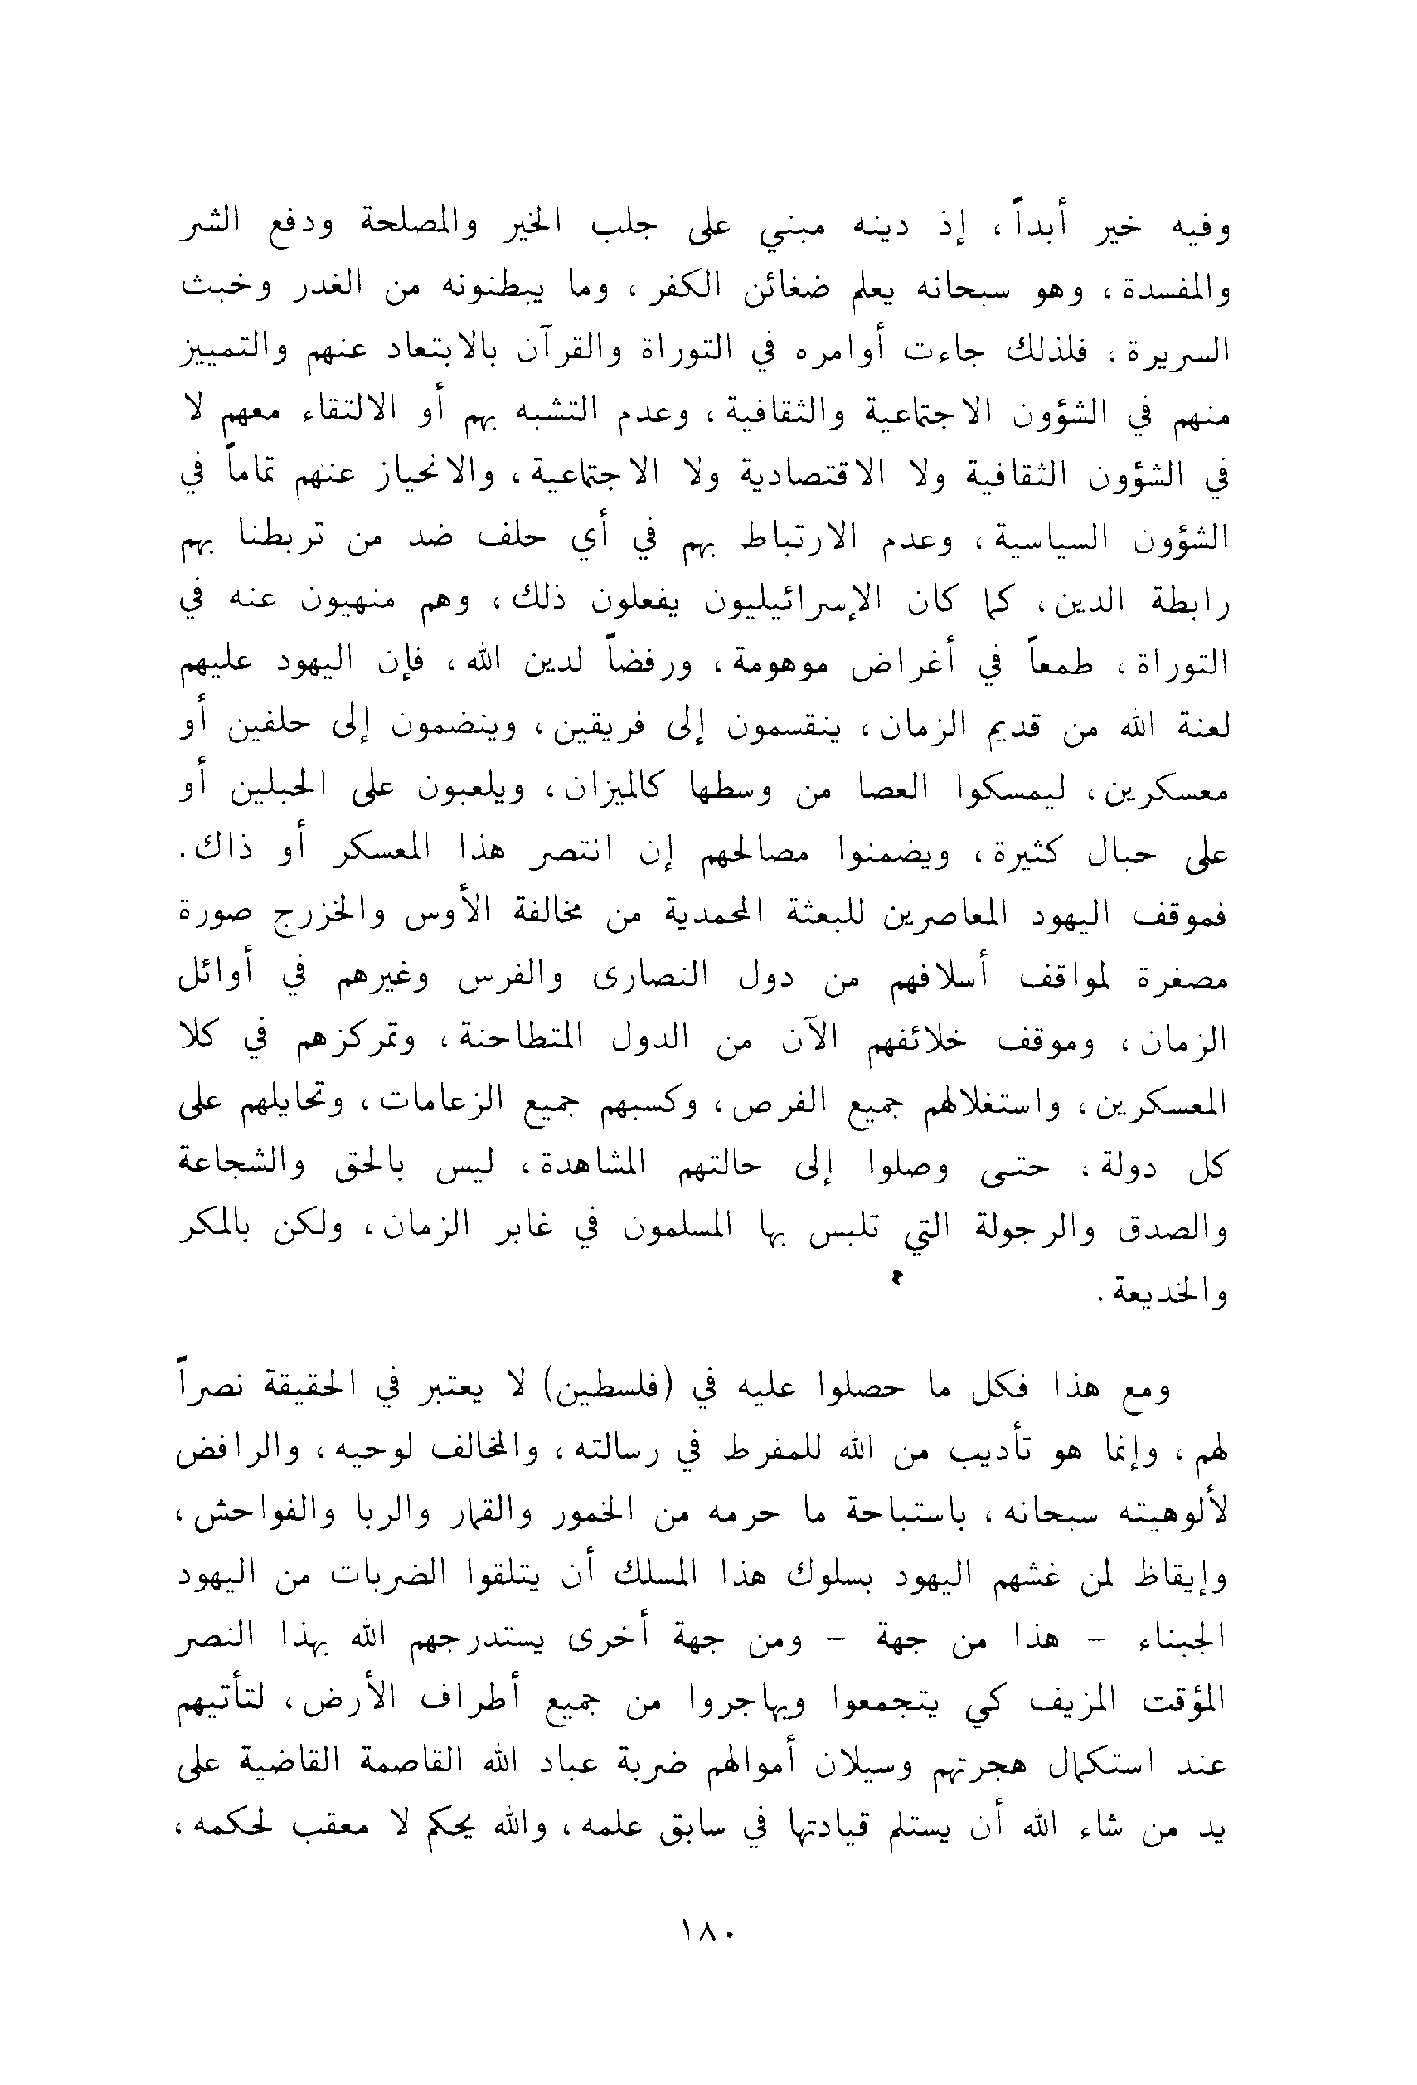 وفيه خير أبداً، إذ دينه مبني على جلب الخير والمصلحة ودفع الشر
والمفسدة، وهو سبحانه يعلم ضغائن الكفر، وما يبطنونه من الغدر وخبث
السريرة، فلذلك جاءت أوامره في التوراة والقرآن بالابتعاد عنهم والتمييز
منهم في الشؤون الاجتماعية والثقافية، وعدم التشبه بهم أو الالتقاء معهم لا
في الشؤون الثقافية ولا الاقتصادية ولا الاجتماعية، والانحياز عنهم تماماً في
الشؤون السياسية، وعدم الارتباط بهم في أي حلف ضد من تربطنا بهم
رابطة الدين، كما كان الإسرائيليون يفعلون ذلك، وهم منهيون عنه في
التوراة، طمعاً في أغراض موهومة، ورفضاً لدين الله، فإن اليهود عليهم
لعنة الله من قديم الزمان، ينقسمون إلى فريقين، وينضمون إلى حلفين أو
معسكرين، ليمسكوا العصا من وسطها كالميزان، ويلعبون على الحبلين أو
على حبال كثيرة، ويضمنوا مصالحهم إن انتصر هذا المعسكر أو ذاك.
فموقف اليهود المعاصرين للبعثة المحمدية من مخالفة الأوس والخزرج صورة
مصغرة لمواقف أسلافهم من دول النصارى والفرس وغيرهم في أوائل
الزمان، وموقف خلائفهم الآن من الدول المتطاحنة، وتمركزهم في كلا
المعسكرين، واستغلالهم جميع الفرص، وكسبهم جميع الزعامات، وتحايلهم على
كل دولة، حتى وصلوا إلى حالتهم المشاهدة، ليس بالحق والشجاعة
والصدق والرجولة التي تلبس بها المسلمون في غابر الزمان، ولكن بالمكر
والخديعة.
ومع هذا فكل ما حصلوا عليه في (فلسطين) لا يعتبر في الحقيقة نصراً
لهم، وإنما هو تأديب من الله للمفرط في رسالته، والمخالف لوحيه، والرافض
لألوهيته سبحانه، باستباحة ما حرمه من الخمور والقمار والربا والفواحش،
وإيقاظ لمن غشهم اليهود بسلوك هذا المسلك أن يتلقوا الضربات من اليهود
الجبناء - هذا من جهة - ومن جهة أخرى يستدرجهم الله بهذا النصر
المؤقت المزيف كي يتجمعوا ويهاجروا من جميع أطراف الأرض، لتأتيهم
عند استكمال هجرتهم وسيلان أموالهم ضربة عباد الله القاصمة القاضية على
يد من شاء الله أن يستلم قيادتها في سابق علمه، والله يحكم لا معقب لحكمه،
١٨٠